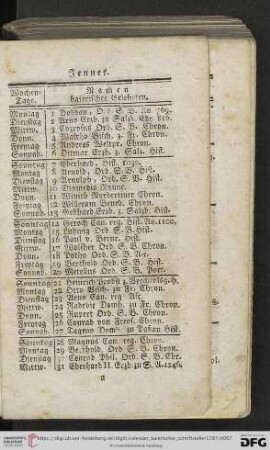 Jenner.
Wochen- Tage. Namen baierischer Gelehrten.
Montag 1 Dobban, Ord. S. B. No 769.
Dienstag 2 Arno Erzb. zu Salzb. Chr. 816.
Mittw. 3 Ord. S. B. Chron.
Donn. 4 Waltho Bisch. z. Fr. Chron.
Freytag 5 Andreas Weltpr. Chron.
Sonnab. 6 Ditmar Erzb. z. Salz. Hist.
Sonntag 7 Eberhard, Hist. 1030.
Montag 8 Arnold, Ord. S. B. Hist.
Dienstag 9 Arnolph, Ord. S. B. Hist.
Mittw. 10
Donn. 11 Chron.
Freytag 12 Williram Bened. Chron.
Sonnab. 13 Gebhard Erzb. z. Salzb. Hist.
Sonntag 14 Geroch Can. reg. Hist. No. 1100.
Montag 15 Ludwig Ord. S. B. Hist.
Dienstag 16 Paul v. Bernr. Hist.
Mittw. 17 Ord. S. B. Chron.
Donn. 18 Potho Ord. S. B.
Freytag 19 Berthold Ord. S. B. Hist.
Sonnab. 20 Metellus Ord. S. B. Poet.
Sonntag 21 Heinrich Probst z. Berchtolsg. H.
Montag 22 Otto Bisch. zu Fr. Chron.
Dienstag 23 Arno Can. reg.
Mittw. 24 Radevic Domh. zu Fr. Chron.
Donn. 25 Rupert Ord. S. B. Chron.
Freytag 26 Conrad von Chron.
Sonnab. 27 Tagmo Domh. zu Passau Hist.
Sonntag 28 Magnus Can. reg. Chron.
Montag 29 Berthold Ord. S. B. Chron.
Dienstag 30 Conrad Phil. Ord. S. B. Chr.
Mittw. 31 Eberhard II. Erzb. zu S. 1246.
a
http://digi.ub.uni-heidelberg.de/diglit/calender_baierischer_schriftsteller1787/0007
© Universitätsbibliothek Heidelberg
gefördert durch die
DFG